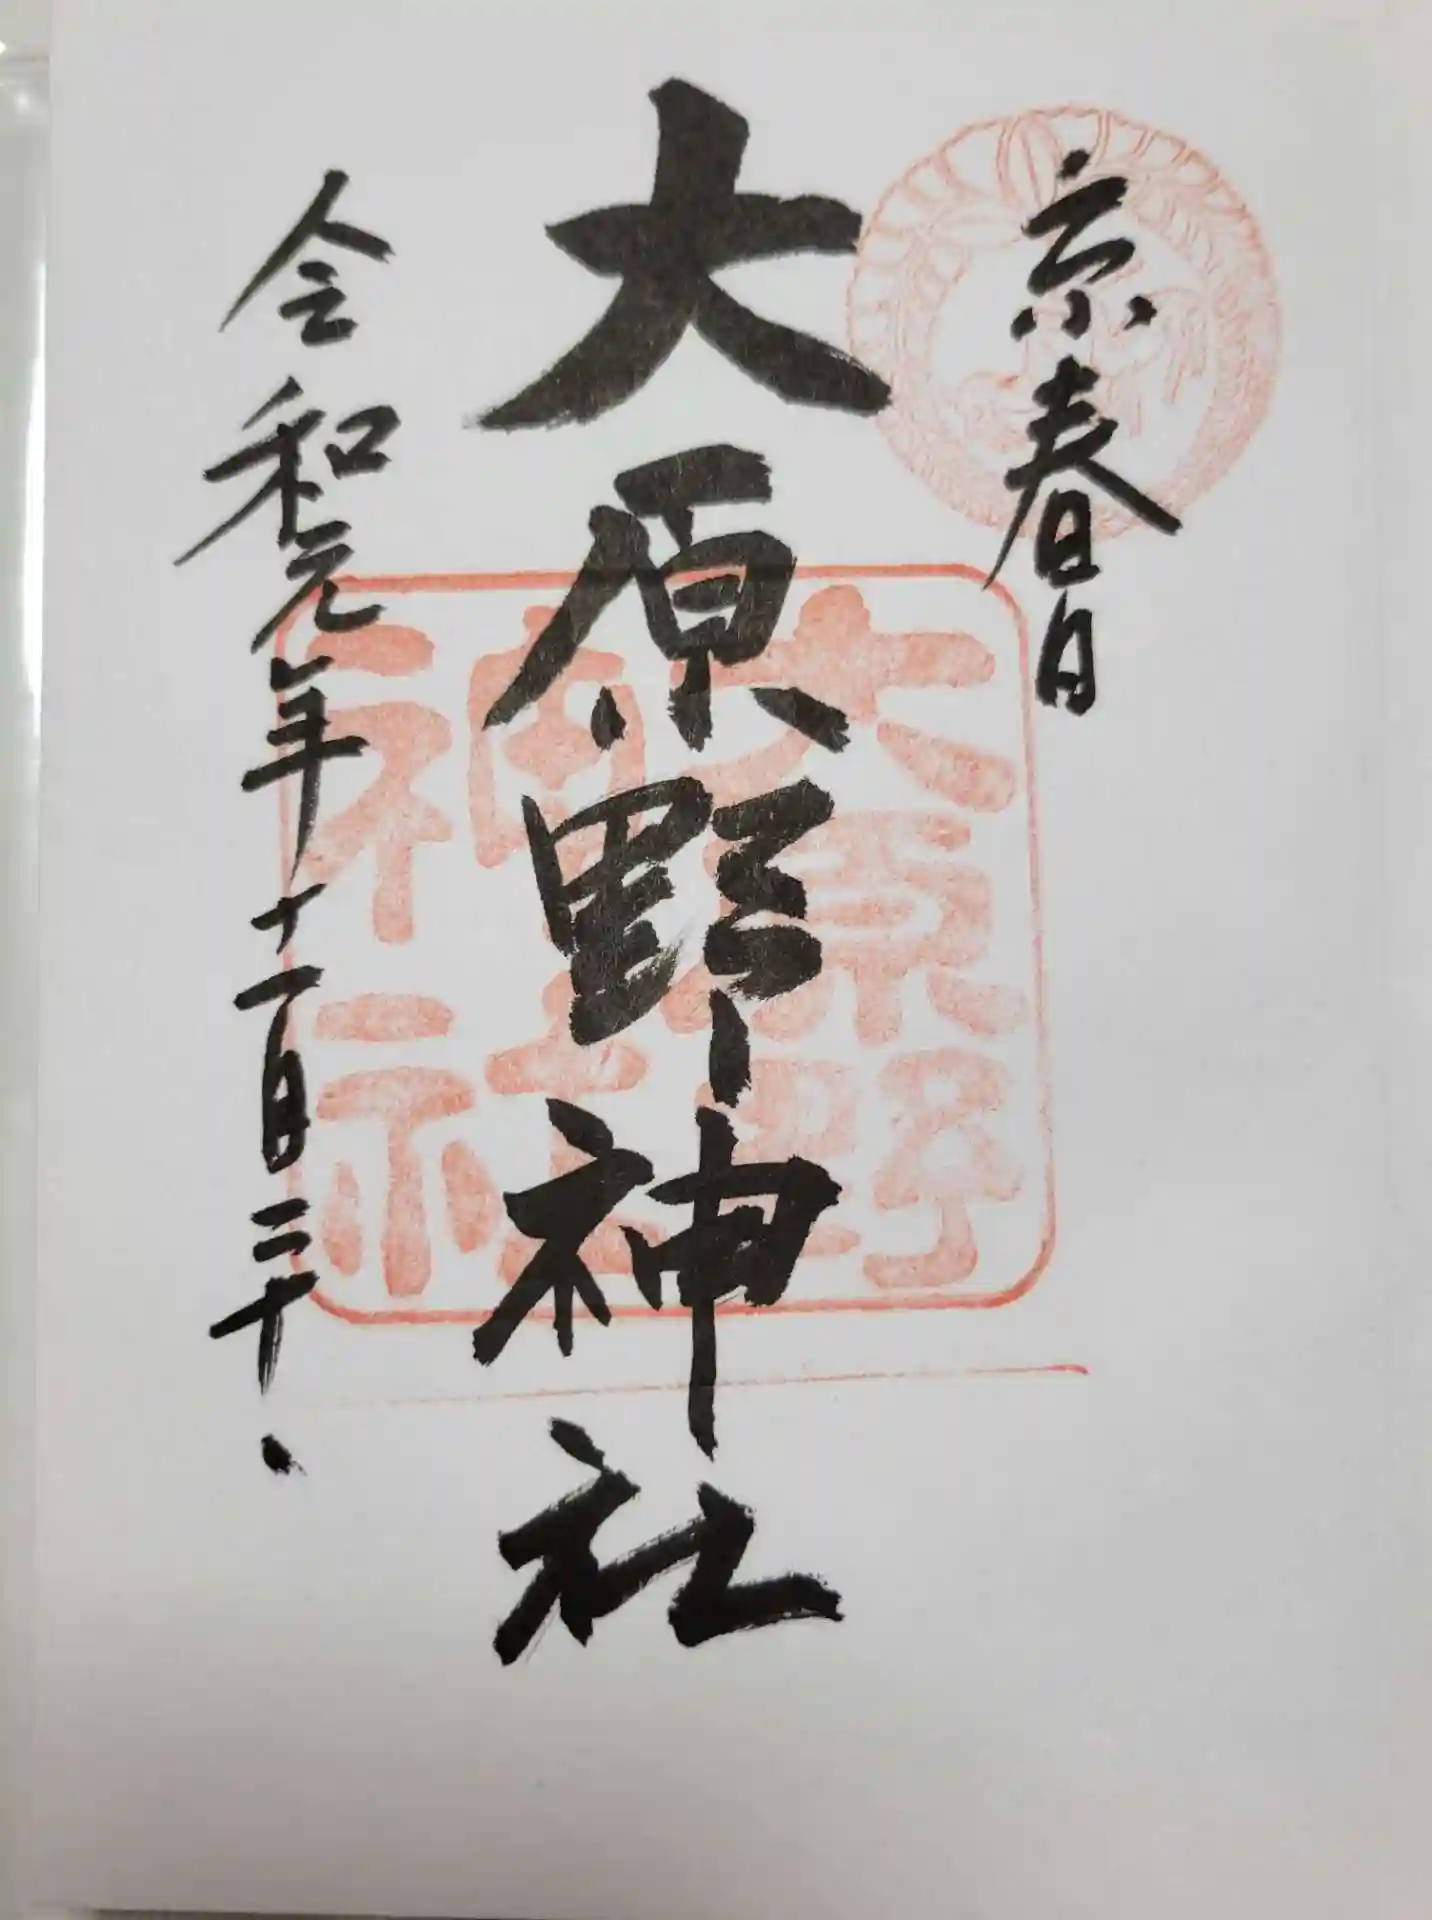 京春日
大原野神社
大原野
神社
令和元年十一月二十